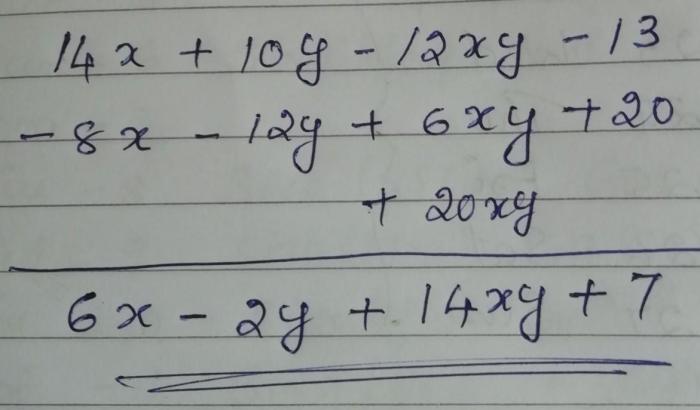 14x + 10y - 12xy - 13
- 8x - 12y + 6xy + 20
+ 20xy
6x - 2y + 14xy + 7